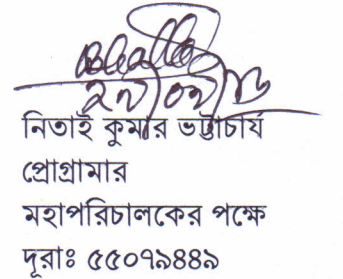 নিতাই কুমার ভট্টাচার্য
প্রোগ্রামার
মহাপরিচালকের পক্ষে
দূরাঃ ৫৫০৭৯৪৪৯